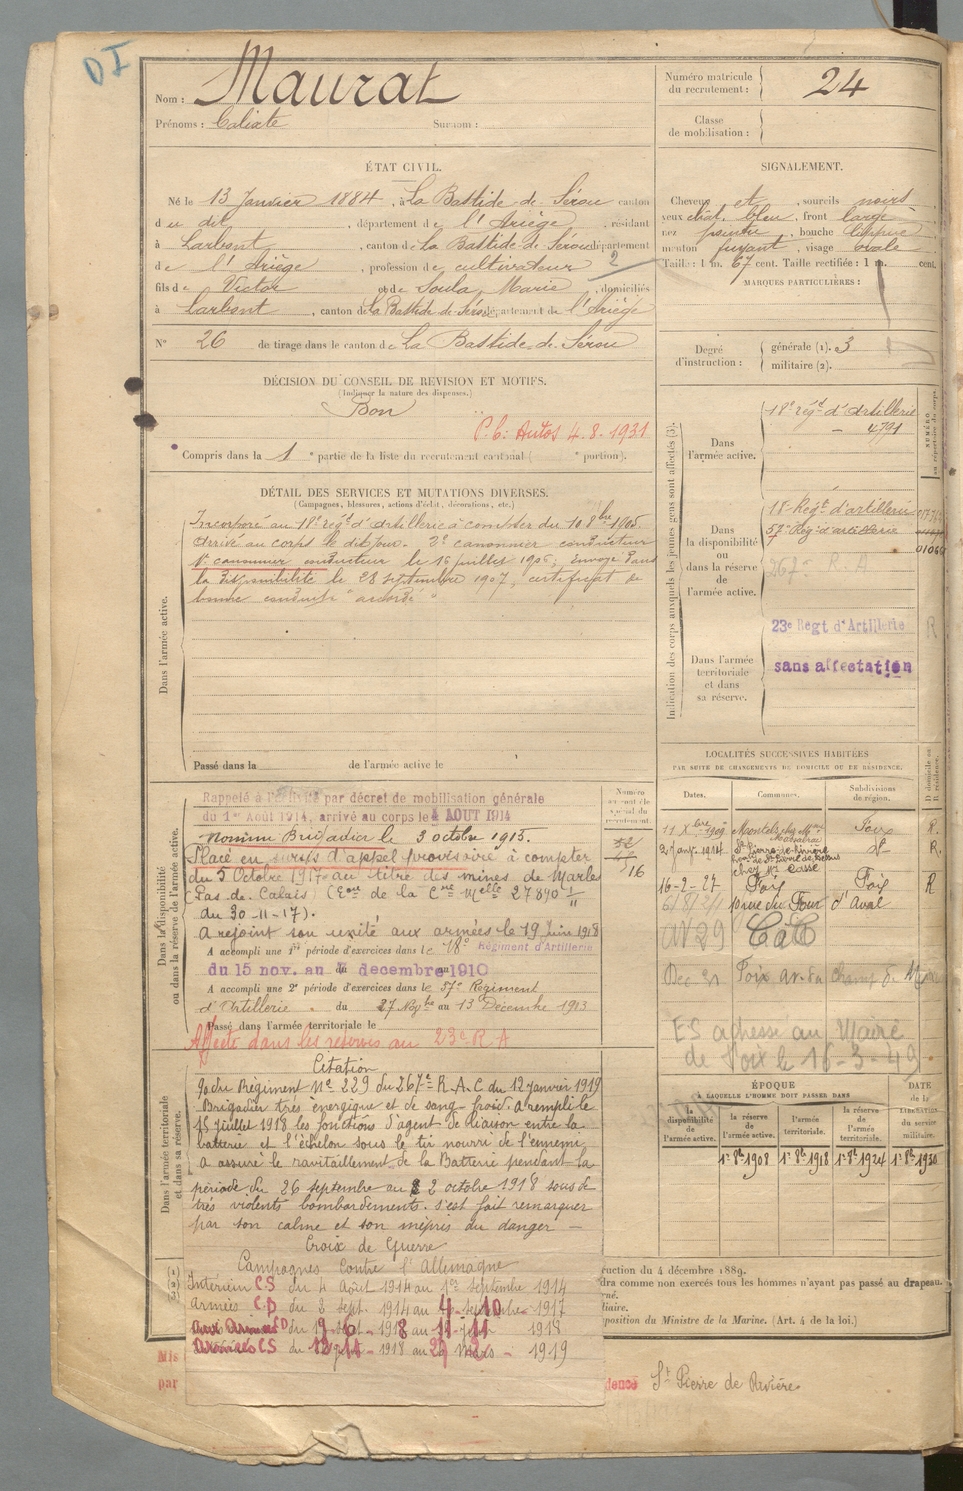 DI
Nom : Maurat
Prénoms : Calixte Surnom :
Numéro matricule
du recrutement : 24
Classe
de mobilisation :
ÉTAT CIVIL.
Né le 13 Janvier 1884, à La Bastide-de-Sérou canton
du dit, département de l'Ariège, résidant
à Larbont, canton de La Bastide-de-Sérou département
de l'Ariège, profession de cultivateur
2
fils de Victor et de Soula, Marie, domiciliés
à Larbont, canton de La Bastide-de-Sérou, département de l'Ariège
N° 26 de tirage dans le canton de La Bastide-de-Sérou
SIGNALEMENT.
Cheveux et, sourcils noirs,
yeux chât. bleu, front large,
nez pointu, bouche lippue,
menton fuyant, visage ovale
Taille : 1 m. 67 cent. Taille rectifiée : 1 m. cent.
MARQUES PARTICULIÈRES :
Degré
d'instruction :
générale (1). 3
militaire (2).
DÉCISION DU CONSEIL DE REVISION ET MOTIFS.
(Indiquer la nature des dispenses.)
Bon
P.C. Autos 4.8.1931
Compris dans la 1e partie de la liste du recrutement cantonal ( e portion).
DÉTAIL DES SERVICES ET MUTATIONS DIVERSES.
(Campagnes, blessures, actions d'éclat, décorations, etc.)
Dans l'armée active.
Incorporé au 18e régt d'artillerie à compter du 10 8bre 1905.
Arrivé au corps le dit jour. 2e canonnier conducteur
1er canonnier conducteur le 15 juillet 1906, Envoyé dans
la disponibilité le 28 septembre 1907, certificat de
bonne conduite "accordé"
Passé dans la de l'armée active le
Indication des corps auxquels les jeunes gens sont affectés (3).
Dans
l'armée active.
18e régt d'Artillerie
- 4791
Dans
la disponibilité
ou
dans la réserve
de
l'armée active.
18e Regt d'artillerie
57e Reg. d'artillerie
267e R. A
Dans l'armée
territoriale
et dans
sa réserve.
23e Regt d'Artillerie R
sans affectation
LOCALITÉS SUCCESSIVES HABITÉES
PAR SUITE DE CHANGEMENTS DE DOMICILE OU DE RÉSIDENCE.
Dates. Communes. Subdivisions
de région. D domicile ou
R résidence.
11 Xbre 1909 Montels Foix R.
2 janv. 1914 St Pierre-de-Rivière dt R.
16-2-27 Foix Foix R
10 rue du Four d'Aval
Foix av. du champ de
ES adressé au Maire
de Foix le 16-3-49
Dans la disponibilité
ou dans la réserve de l'armée active.
Rappelé à l'activité par décret de mobilisation générale
du 1er Août 1914, arrivé au corps le 4 AOUT 1914
Nommé Brigadier le 3 octobre 1915.
Placé en sursis d'appel provisoire à compter
du 5 Octobre 1917 au titre des mines de Marles
(Pas-de-Calais) (Eon de la Cne Melle 27890 1/11
du 30-11-17).
A rejoint son unité aux armées le 19 juin 1918
A accompli une 1re période d'exercices dans le 18e Régiment d'Artillerie
du 15 nov. au 7 decembre 1910
A accompli une 2e période d'exercices dans le 57e Régiment
d'Artillerie. du 27 Novbre au 13 Décembre 1913
Passé dans l'armée territoriale le
Affecté dans les réserves au 23e R.A
16
ÉPOQUE
A LAQUELLE L'HOMME DOIT PASSER DANS
DATE
de la
LIBÉRATION
du
service
militaire.
la
disponibilité
de
l'armée active.
la réserve
de
l'armée active.
l'armée
territoriale.
la réserve
de
l'armée
territoriale.
1er 8bre 1908 1er 8bre 1918 1er 8bre 1924 1er 8bre 1930
Dans l'armée territoriale
et dans sa réserve.
Citation
O. du Régiment N° 229 du 267e R.A.C du 12 janvier 1919
Brigadier très énergique et de sang-froid a rempli le
15 juillet 1918 les fonctions d'agent de liaison entre la
batterie et l'échelon sous le tir nourri de l'ennemi,
a assuré le ravitaillement de la Batterie pendant la
période du 26 septembre au 2 octobre 1918 sous de
très violents bombardements. s'est fait remarquer
par son calme et son mépris du danger -
Croix de Guerre
Campagnes contre l'Allemagne
Intérieur CS du 4 Août 1914 au 1er septembre 1914
Armées CD du 2 sept. 1914 au 4-10 1917
Aux Armées CD du 19-6-1918 au 11-11 1918
Armées CS du 12-11-1918 au 27 Mars 1919
(1)
(2)
(3)
ruction du 4 décembre 1889.
dra comme non exercés tous les hommes n'ayant pas passé au drapeau.
rné.
liaire.
position du Ministre de la Marine. (Art. 4 de la loi.)
Mis
par
dence St Pierre de Rivière